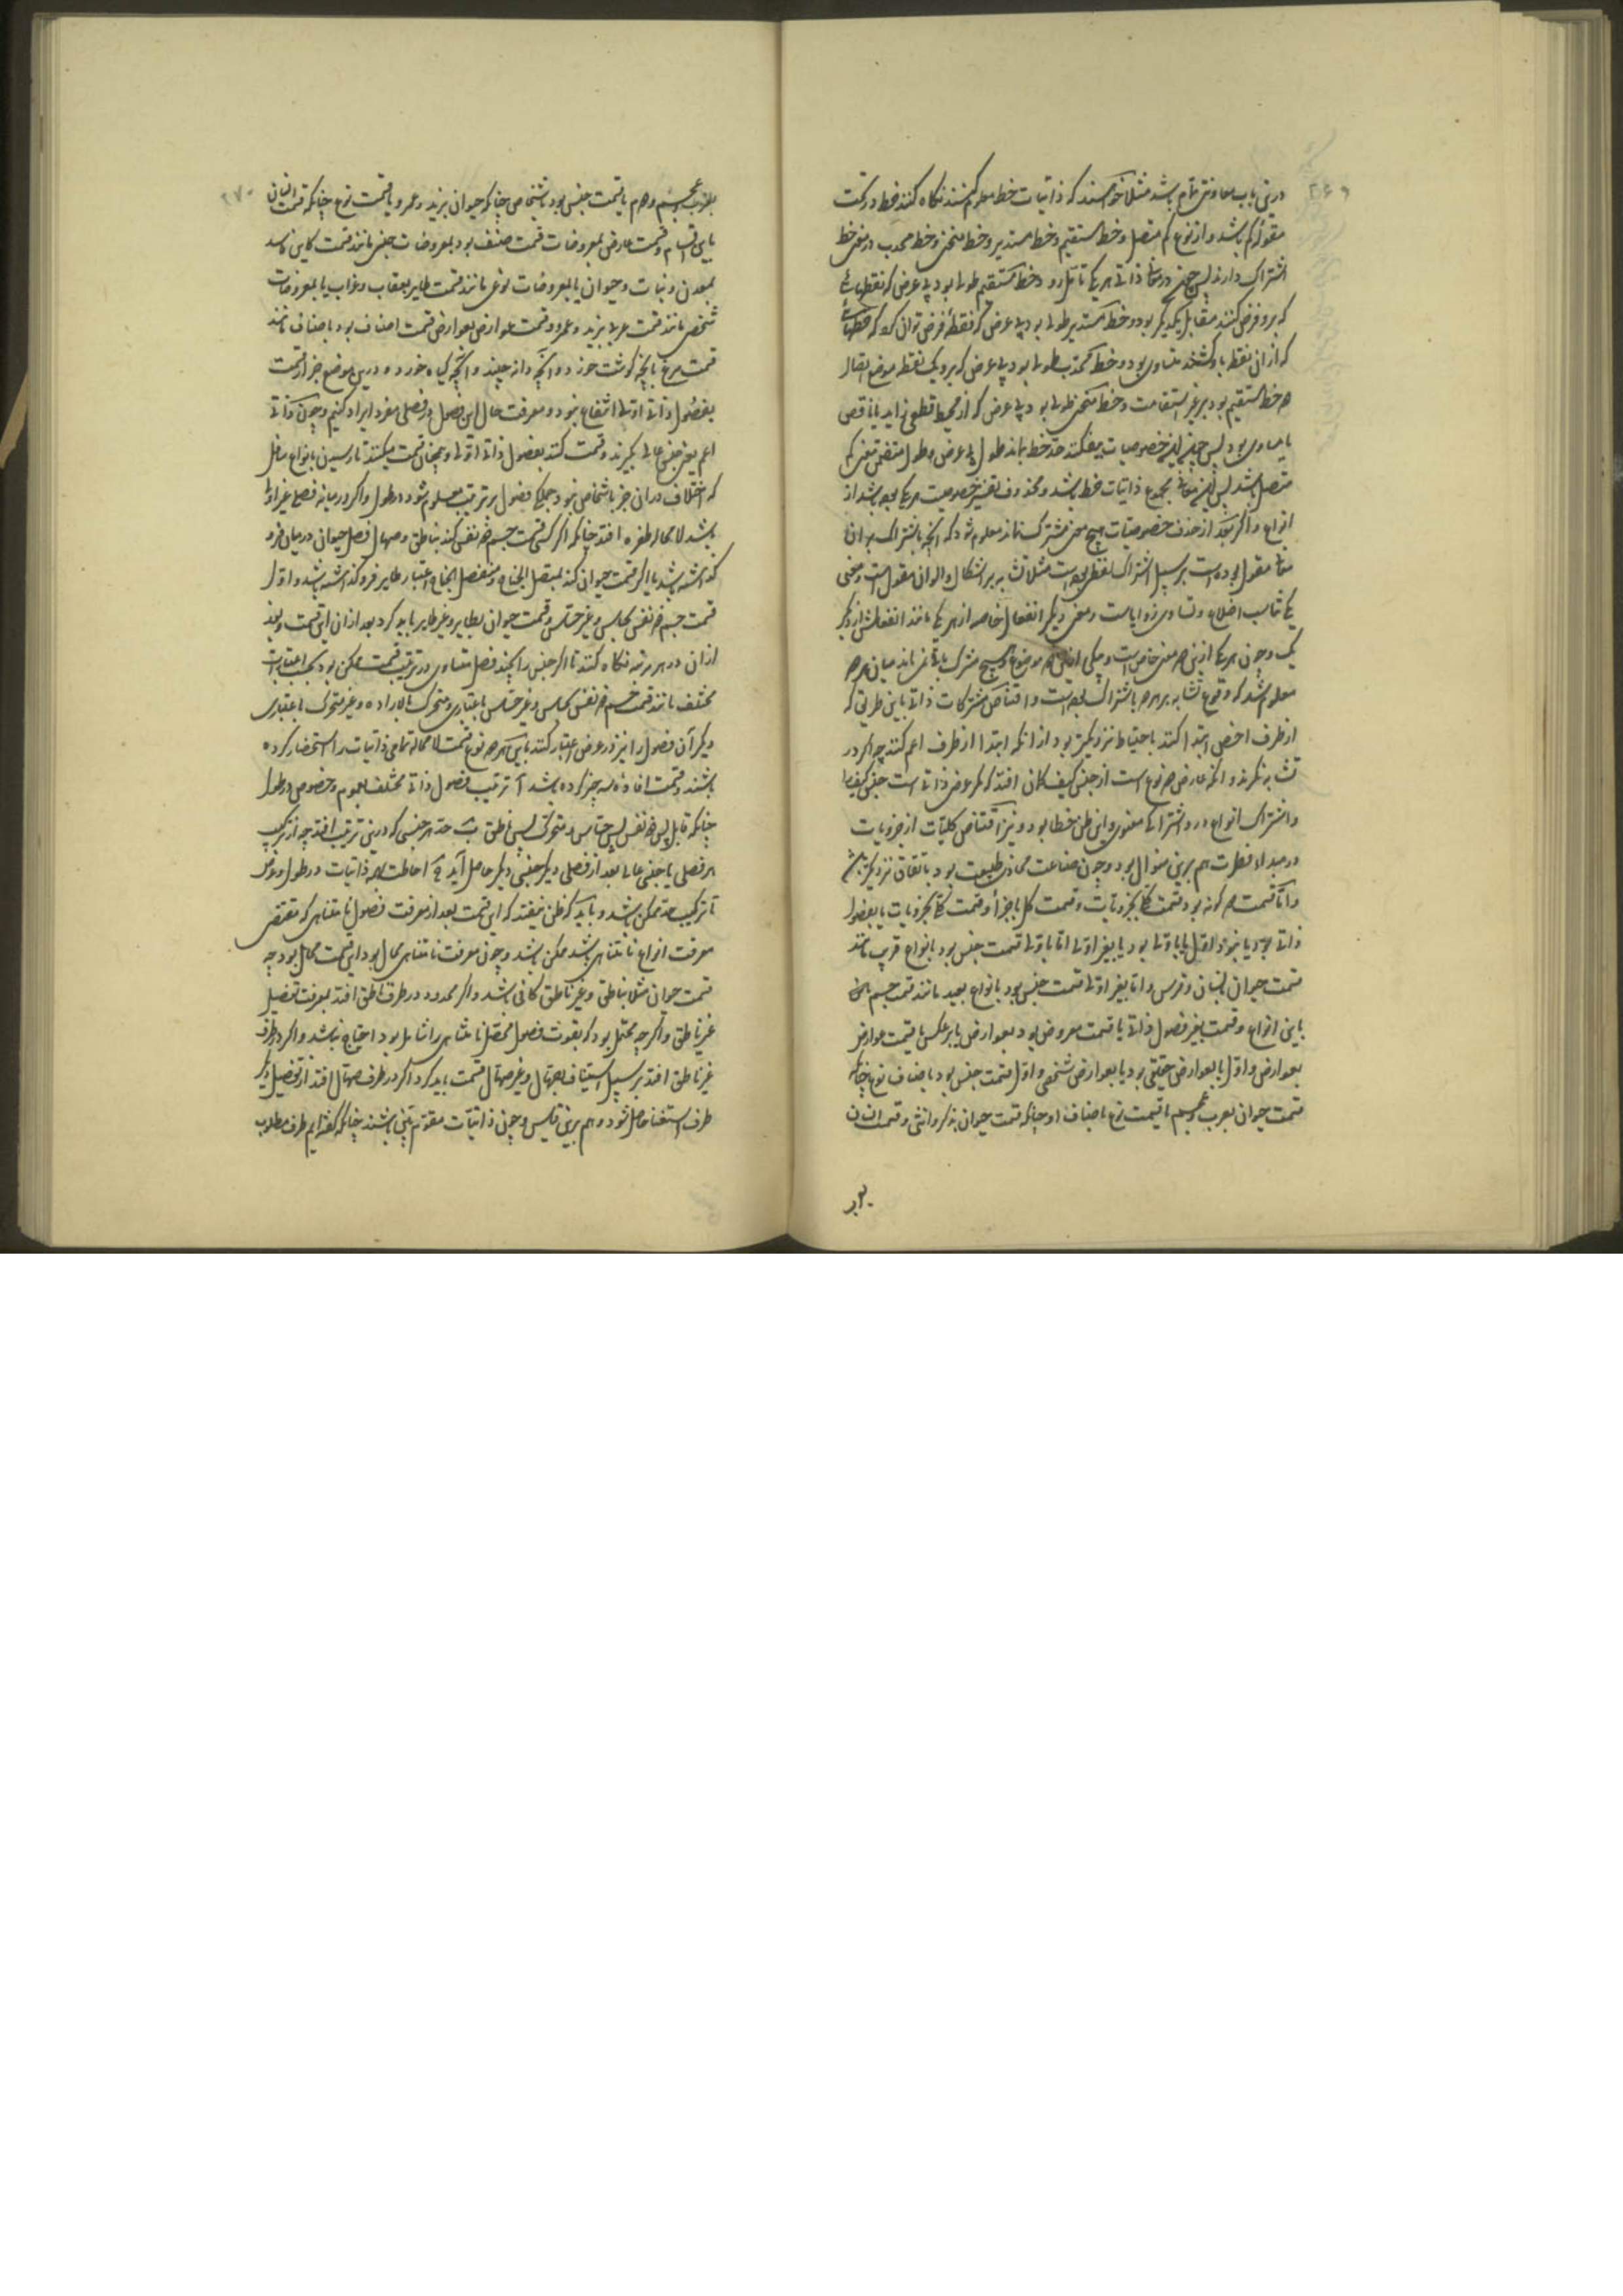 ۲۶۹
درین باب معاونتی تمام باشد مثلا خواستند که ذاتیات خط معلوم کنند نگاه کنند خط در تحت
مقوله کم باشد و از نوع کم متصل و خط مستقیم و خط مستدیر و خط منحنی و خط محدب در معنی خط
اشتراک دارند پس چون در معانی ذاتی هر یکی تامل رود خط مستقیم طولی بود بی عرض که نقطهائی
که برو فرض کنند مقابل یکدیگر بود و خط مستدیر طولی بود بی عرض که نقطه فرض توان کرد که خطهائی
که از ان نقطه باو کشند متساوی بود و خط محدب طولی بود بی عرض که برو یک نقطه موضع اتصال
دو خط مستقیم بود بر غیر استقامت و خط منحنی طولی بود بی عرض که از محیط قطعی زاید یا ناقص
یا مساوی بود پس چون این خصوصیات بیفکنند حد خط بماند طول بی عرض و طول متضمن معنی کم
متصل باشد پس این معانی مجموع ذاتیات خط باشد و محذوف تفسیر خصوصیت هر یکی بوده باشد از
انواع و اگر بعد از حذف خصوصیات هیچ معنی مشترک نماند معلوم شود که آنچه باشتراک بر ان
معانی مقول بوده است بر سبیل اشتراک لفظی بوده است مثلا تشابه بر اشکال و الوان مقول است و معنی
یکی تناسب اضلاع و تساوی زوایاست و معنی دیگر انفعال خاصه از هر یکی مانند انفعالش از دیگر
یک و چون هر یکی ازین دو معنی خاص است و بیکی ازین دو موضوع و هیچ مشترک باقی نمی ماند میان هر دو
معلوم شد که وقوع تشابه بر هر دو باشتراک بوده است و اقتناص مشترکات ذاتی باین طریق که
از طرف اخص ابتدا کنند باحتیاط نزدیکتر بود از آنکه ابتدا از طرف اعم کنند چه اگر در
تشابه نگرند و آنکه عارض دو نوع است از جنس کیف گمان افتد که مگر عرض ذاتی است جنس کیف را
و اشتراک انواع در و اشتراکی معنوی و این ظن خطا بود و نیز اقتناص کلیات از جزویات
در مبداء فطرت هم برین منوال بود و چون صناعت محاذی طبیعت بود باتفاق نزدیکتر باشد
و اما قسمت دو گونه بود قسمت کلی بجزویات و قسمت کل باجزا و قسمت کلی بجزویات یا بفصول
ذاتی بود یا نبود و اول یا باولی بود یا بغیر اولی اما باولی قسمت جنس بود بانواع قریب مانند
قسمت حیوان بانسان و فرس و اما بغیر اولی قسمت جنس بود بانواع بعید مانند قسمت جسم نامی
باین انواع و قسمت بغیر فصول ذاتی یا قسمت معروض بود بعوارض یا بر عکس یا قسمت عوارض
بعوارض و اول یا بعوارض حقیقی بود یا بعوارض شخصی و اول قسمت جنس بود باصناف نوع چنانکه
قسمت حیوان بعرب و عجم یا قسمت نوع باصناف او چنانکه قسمت حیوان بذکر و انثی و قسمت انسان
بعرب
۲۷۰
بعرب و عجم و دوم یا قسمت جنس بود باشخاص چنانکه حیوان بزید و عمرو یا قسمت نوع چنانکه قسمت انسان
باین اقسام و قسمت عارض بمعروضات قسمت صنف بود بمعروضات جنس مانند قسمت کاین فاسد
بمعدن و نبات و حیوان یا بمعروضات نوعی مانند قسمت طایر بعقاب و غراب یا بمعروضات
شخصی مانند قسمت عربی بزید و عمرو و قسمت عوارض بعوارض قسمت اصناف بود باصناف مانند
قسمت مرغ بآنچه گوشت خورد و آنچه دانه چیند و آنچه گیاه خورد و درین موضع جز از قسمت
بفصول ذاتی اولی انتفاع نبود و معرفت حال این فصول در فصلی مفرد ایراد کنیم و چون ذاتی
اعم یعنی جنس عالی بگیرند و قسمت کنند بفصول ذاتی اولی و همچنان قسمت میکنند تا رسیدن بانواع سافل
که اختلاف در ان جز باشخاص نبود جملگی فصول بر ترتیب معلوم شود در طول و اگر در میانه فصلی غیر اولی
باشد لا محاله طفره افتد چنانکه اگر کسی قسمت جسم ذو نفس کند بناطق و صهال فصل حیوانی در میان فرو
گذاشته باشد یا اگر قسمت حیوان کند بمتصل الجناح و منفصل الجناح اعتبار طایر فرو گذاشته باشد و اول
قسمت جسم ذو نفس بحساس و غیر حساس و قسمت حیوان بطایر و غیر طایر باید کرد بعد از ان این قسمت و بعد
از ان در هر مرتبه نگاه کنند تا اگر جنس را بچند فصل متساوی در ترتیب قسمت ممکن بود بحسب اعتبارات
مختلف مانند قسمت جسم ذو نفس بحساس و غیر حساس باعتباری و متحرک بالاراده و غیر متحرک باعتباری
دیگر آن فصول را نیز در عرض اعتبار کنند باین هر دو نوع قسمت لا محاله تمامی ذاتیات را استحضار کرده
باشند و قسمت افاده سه چیز کرده باشد آ ترتیب فصول ذاتی مختلف بعموم و خصوص در طول
چنانکه قابل پس ذو نفس پس حساس و متحرک پس ناطق ب حد هر جنسی که درین ترتیب افتد چه از ترکیب
هر فصلی با جنس عالی بعد از فصلی دیگر جنسی دیگر حاصل آید ج احاطت بهمه ذاتیات در طول و عرض
تا ترکیب حد ممکن باشد و باید که ظن نیفتد که این قسمت بعد از معرفت فصول نا متناهی که مقتضی
معرفت انواع نا متناهی باشد ممکن باشد و چون معرفت نا متناهی محال بود این قسمت محال بود چه
قسمت حیوان مثلا بناطق و غیر ناطق کافی باشد و اگر محدود در طرف ناطق افتد بمعرفت تفصیل
غیر ناطق و اگر چه محتمل بود که بقوت فصول محصل نا متناهی را شامل بود احتیاج نباشد و اگر در طرف
غیر ناطق افتد بر سبیل استیناف بصهال و غیر صهال قسمت باید کرد و اگر در طرف صهال افتد از تفصیل دیگر
طرف استغنا حاصل شود و هم برین قیاس و چون ذاتیات مقوم متناهی باشند چنانکه گفته ایم طرف مطلوب